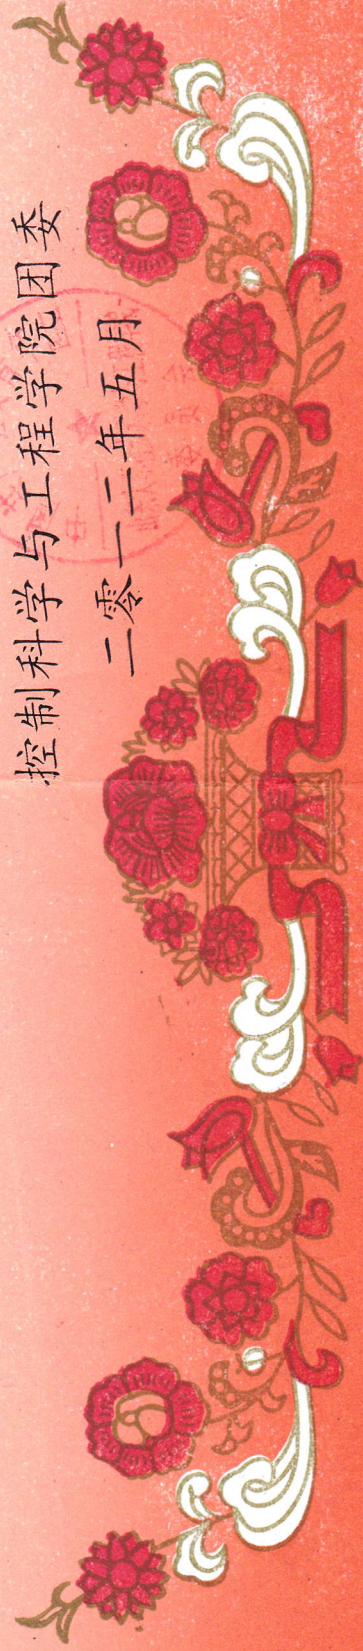 控制科学与工程学院团委
二零一二年五月